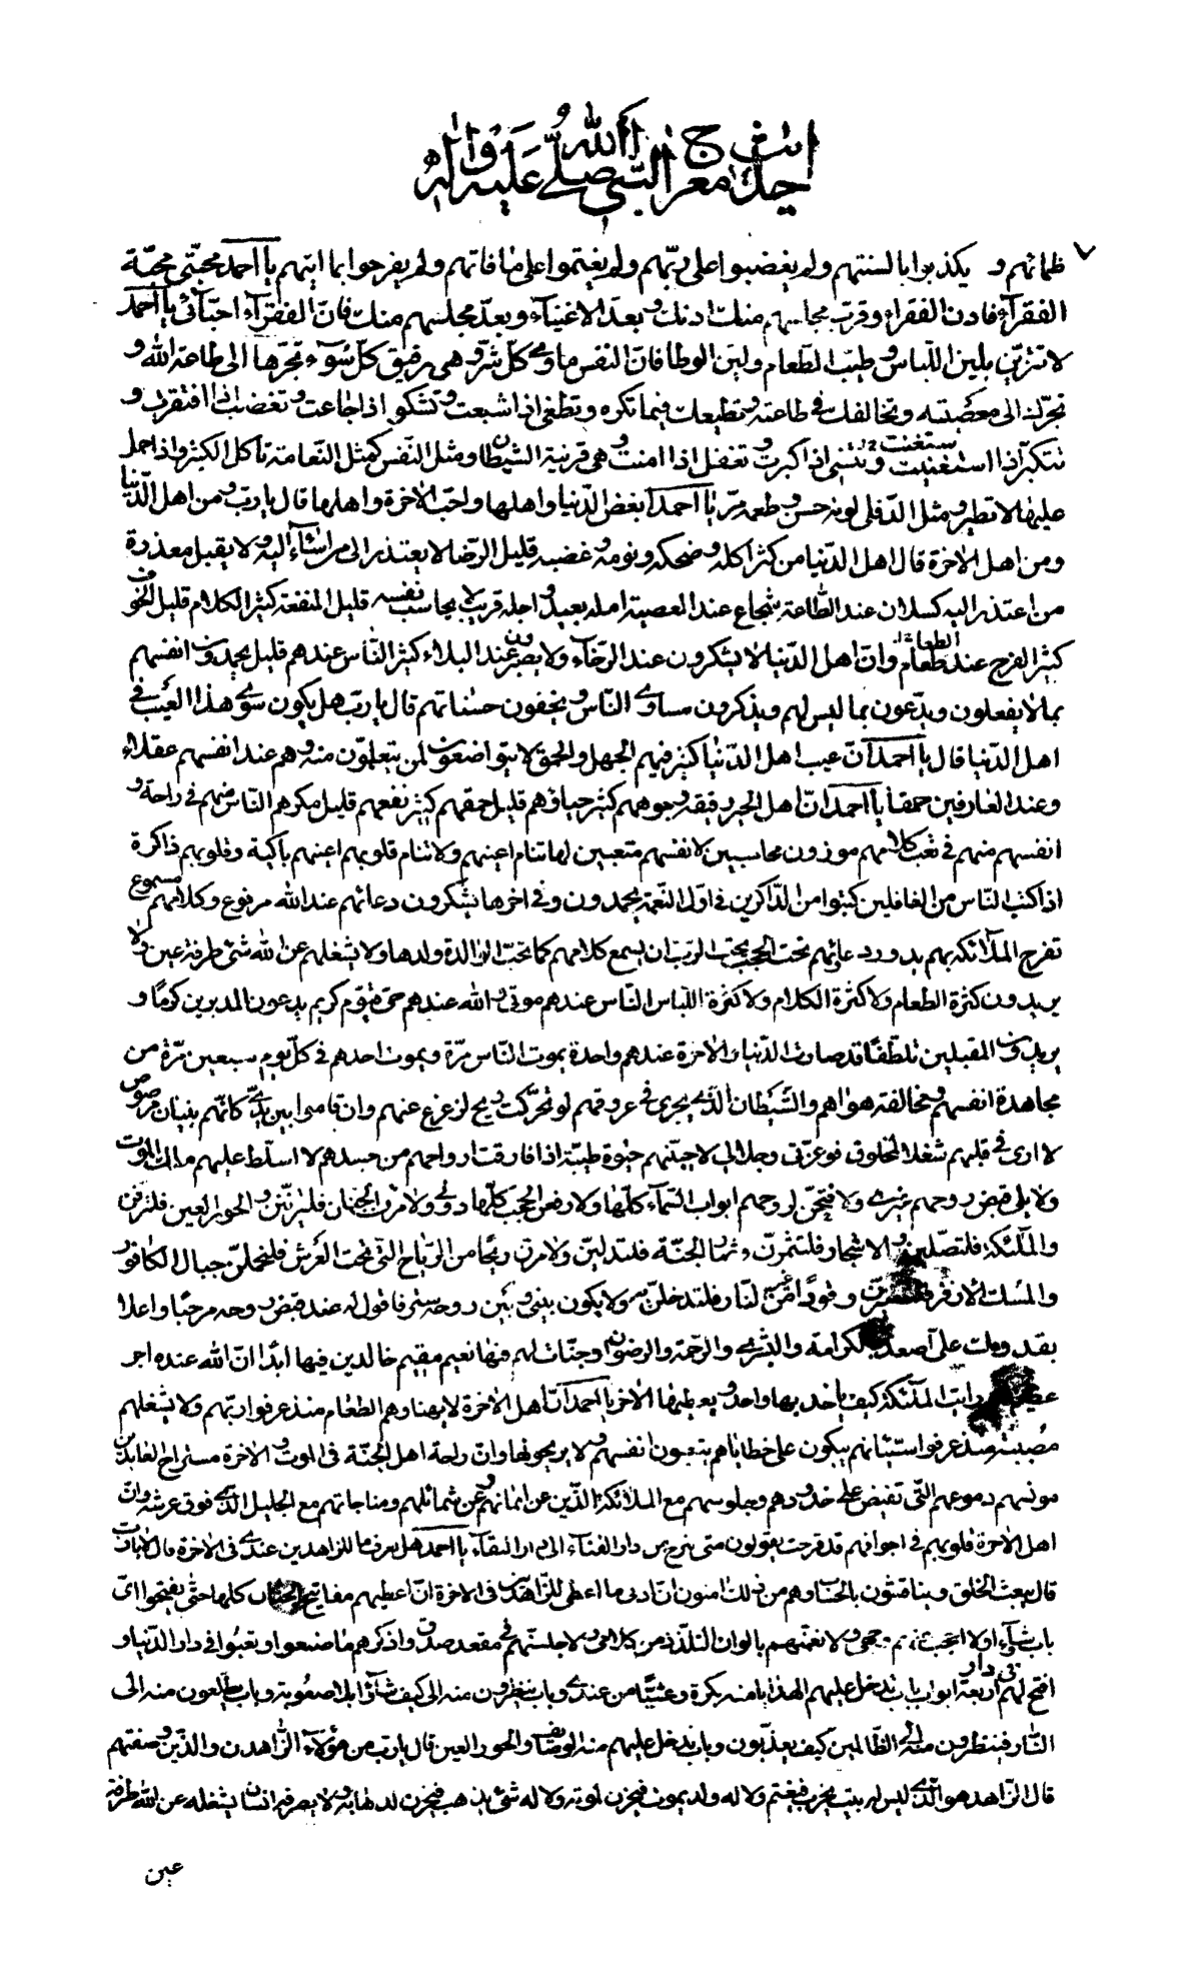 احاديث معراج النبى صلى الله عليه واله
ظمائهم و يكذبوا بالسنتهم ولم يغضبوا على ربّهم ولم يغتموا على ما فاتهم ولم يفرحوا بما اتيهم يا احمد محبّتى محبّة
الفقرآء فادن الفقراء وقرب مجالسهم منك ادنك و بعد الاغنيآء وبعد مجلسهم منك فان الفقرآء احبآئى يا احمد
لا تتزيّن بلين اللّباس و طيّب الطعام ولين الوطا فانّ النفس ماوى كلّ شر و هى رفيق كلّ سوٓء تجرّها الى طاعة الله و
تجرّك الى معصيته وتخالفك فى طاعته وتطيعك فيما تكره وتطغى اذا شبعت وتشكو اذا جاعت و تغضب اذا افتقرت و
تتكبّر اذا استغنيت ستغنت و تنسى اذا كبرت و تغفل اذا امنت و هى قرينة الشيطان ومثل النّفس كمثل النّعامة تاكل الكثير و اذا حمل
عليها لا تطير و مثل الدّفلى لونه حسن و طعمه مرّ يا احمد ابغض الدّنيا واهلها واحبّ الاخرة واهلها قال يا ربّ و من اهل الدّنيا
ومن اهل الاخرة قال اهل الدّنيا من كثر اكله و ضحكه و نومه و غضبه قليل الرضا لا يعتذر الى من اسآء اليه و لا يقبل معذرة
من اعتذر اليه كسلان عند الطّاعة شجاع عند المعصية امله بعيد و اجله قريب لا يحاسب نفسه قليل المنفعة كثير الكلام قليل الخوف
كثير الفرح عند طعام الطعام وانّ اهل الدّنيا لا يشكرون عند الرّخآء ولا يصبرون عند البلاء كثير النّاس عندهم قليل يحمدون انفسهم
بما لا يفعلون ويدّعون بما ليس لهم ويذكرون مساوى النّاس و يخفون حسناتهم قال يا ربّ هل يكون سوى هذا العيب فى
اهل الدّنيا قال يا احمد انّ عيب اهل الدّنيا كثير فيهم الجهل والحمق لا يتواضعون لمن يتعلمّون منه و هم عند انفسهم عقلاء
وعند العارفين حمقآ يا احمد انّ اهل الخير رقيقة وجوههم كثير حياؤهم قليل حمقهم كثير نفعهم قليل مكرهم النّاس منهم فى راحة و
انفسهم منهم فى تعب كلامهم موزون محاسبين لانفسهم متعبين لها تنام اعينهم ولا تنام قلوبهم اعينهم باكية وقلوبهم ذاكرة
اذا كتب النّاس من الغافلين كتبوا من الذّاكرين فى اوّل النّعمة يحمدون وفى اخرها يشكرون دعائهم عند الله مرفوع وكلامهم مسموع
تفرح الملآئكه بهم يدور دعائهم تحت الحجب يحبّ الرّب ان يسمع كلامهم كما تحبّ الوالدة ولدها ولا يشغلهم عن الله شئ طرفة عين ولا
يريدون كثرة الطعام ولا كثرة الكلام ولا كثرة اللباس النّاس عندهم موتى و الله عندهم حىّ قيّوم كريم يدعون المدبرين كرمًا و
يريدون المقبلين تلطّفًا قد صارت الدّنيا والاخرة عندهم واحدة يموت النّاس مرّة ويموت احدهم فى كلّ يوم سبعين مرّة من
مجاهدة انفسهم و مخالفة هواهم والشّيطان الّذى يجرى فى عروقهم لو تحرّكت ريح لزعزع عنهم وان قاموا بين يدىّ كانّهم بنيان مرصوص
لا ارى فى قلبهم شغلا لمخلوق فوعزّتى وجلالى لاحيينّهم حيوة طيّبة اذا فارقت ارواحهم من جسدهم لا اسلّط عليهم ملك الموت
ولا يلى قبض روحهم غيرى ولافتحنّ لروحهم ابواب السّمآء كلّها ولارفعن الحجب كلّها دونى ولامرن الجنان فلتزيّنن و الحور العين فلتزفن
والملئكة فلتصلين و الاشجار فلتثمرنّ و ثمار الجنّة فلتدلين ولامرن ريحًا من الرّياح التى تحت العرش فلتحملنّ جبال الكافور
والمسك الاذفر وقودًا من غير النّار فلتدخلنّ به ولا يكون بينى و بين روحه ستر فاقول له عند قبض روحه مرحبًا واهلا
بقدومك علىّ اصعد بالكرامة والبشرى والرّحمة والرضوان وجنّات لهم فيها نعيم مقيم خالدين فيها ابدًا انّ الله عنده اجر
عظيم رايت الملئكة كيف ياخذ بها واحد و يعطيها الاخر يا احمد انّ اهل الاخرة لا يهناوهم الطعام منذ عرفوا ربّهم ولا يشغلهم
مصيبة منذ عرفوا سيّئاتهم يبكون على خطاياهم يتعبون انفسهم و لا يريحونها وانّ راحة اهل الجنّة فى الموت و الاخرة مستراح العابدين
مونسهم دموعهم التّى تفيض على خدودهم وجلوسهم مع الملائكة الّذين عن ايمانهم و عن شمائلهم ومناجاتهم مع الجليل الّذى فوق عرشه وانّ
اهل الاخرة قلوبهم فى اجوافهم قد قرحت يقولون متى نستريح من دار الفنآء الى دار البقآء يا احمد هل تعرف ما للزاهدين عندى فى الاخرة قال لا يا ربّ
قال يبعث الخلق ويناقشون بالحساب وهم من ذلك امنون انّ ادنى ما اعطى للزّاهدين فى الاخرة ان اعطيهم مفاتيح الجنان كلها حتّى يفتحوا اىّ
باب شآؤا ولا احجب عنهم وجهى ولانعمنّهم بالوان التلذّذ من كلامى ولاجلسنّهم فى مقعد صدق و اذكرهم ما صنعوا وتعبوا فى دار الدّنيا و
افتح لهم اربعة ابواب باب تدخل عليهم الهدايا منه بكرة وعشيًّا من عندى و باب ينظرون منه الى كيف شآؤا بلا صعوبة و باب يطّلعون منه الى
النّار فينظرون منه الى الظّالمين كيف يعذّبون وباب يدخل عليهم منه الوصايف و الحور العين قال يا ربّ من هؤلآء الزّاهدون والّذين وصفتهم
قال الزّاهد هو الّذى ليس له بيت يخرب فيغتم ولا له ولد يموت فيحزن لموته ولا له شئ يذهب فيحزن لذهابه و لا يعرفه انسان ليشغله عن الله طرفة
عين